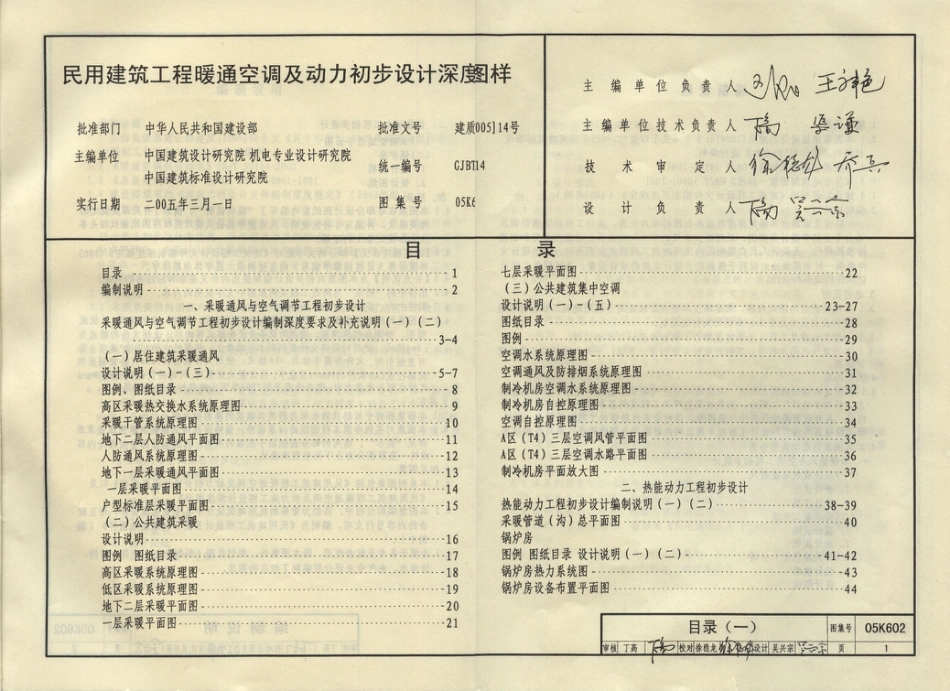 民用建筑工程暖通空调及动力初步设计深度图样
批准部门 中华人民共和国建设部 批准文号 建质005]14号
主编单位 中国建筑设计研究院 机电专业设计研究院 统一编号 GJBT14
中国建筑标准设计研究院
实行日期 二00五年三月一日 图集号 05K6
主编单位负责人
主编单位技术负责人
技术审定人
设计负责人
目录
目录 1
编制说明 2
一、采暖通风与空气调节工程初步设计
采暖通风与空气调节工程初步设计编制深度要求及补充说明(一)(二)
3-4
(一)居住建筑采暖通风
设计说明(一)-(三) 5-7
图例、图纸目录 8
高区采暖热交换水系统原理图 9
采暖干管系统原理图 10
地下二层人防通风平面图 11
人防通风系统原理图 12
地下一层采暖通风平面图 13
一层采暖平面图 14
户型标准层采暖平面图 15
(二)公共建筑采暖
设计说明 16
图例 图纸目录 17
高区采暖系统原理图 18
低区采暖系统原理图 19
地下二层采暖平面图 20
一层采暖平面图 21
七层采暖平面图 22
(三)公共建筑集中空调
设计说明(一)-(五) 23-27
图纸目录 28
图例 29
空调水系统原理图 30
空调通风及防排烟系统原理图 31
制冷机房空调水系统原理图 32
制冷机房自控原理图 33
空调自控原理图 34
A区(T4)三层空调风管平面图 35
A区(T4)三层空调水路平面图 36
制冷机房平面放大图 37
二、热能动力工程初步设计
热能动力工程初步设计编制说明(一)(二) 38-39
采暖管道(沟)总平面图 40
锅炉房
图例 图纸目录 设计说明(一)(二) 41-42
锅炉房热力系统图 43
锅炉房设备布置平面图 44
目录(一) 图集号 05K602
审核 丁高 校对 徐稳龙 设计 吴兴宗 页 1